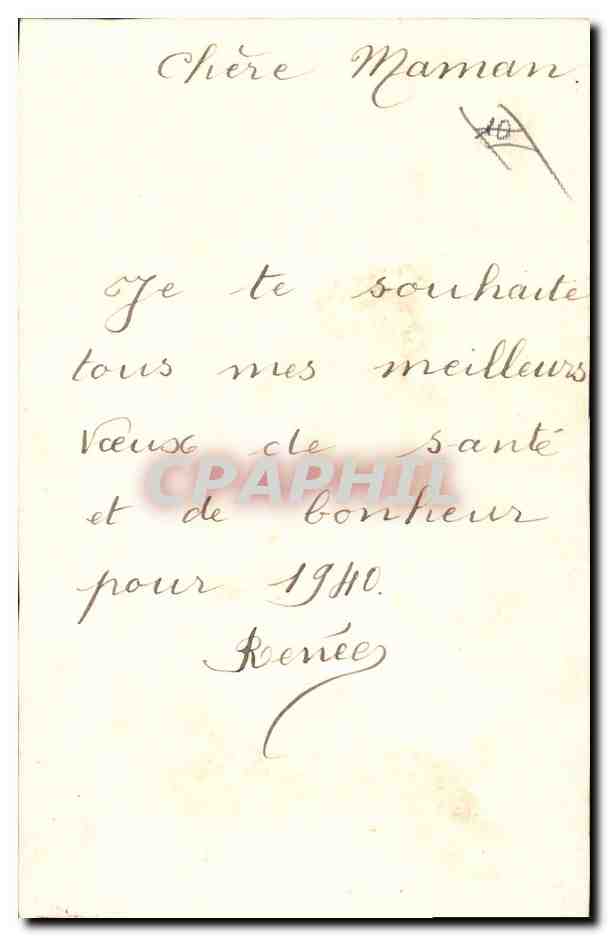 Chère Maman.
10
Je te souhaite
tous mes meilleurs
vœux de santé
CPAPHIL
et de bonheur
pour 1940.
Renée